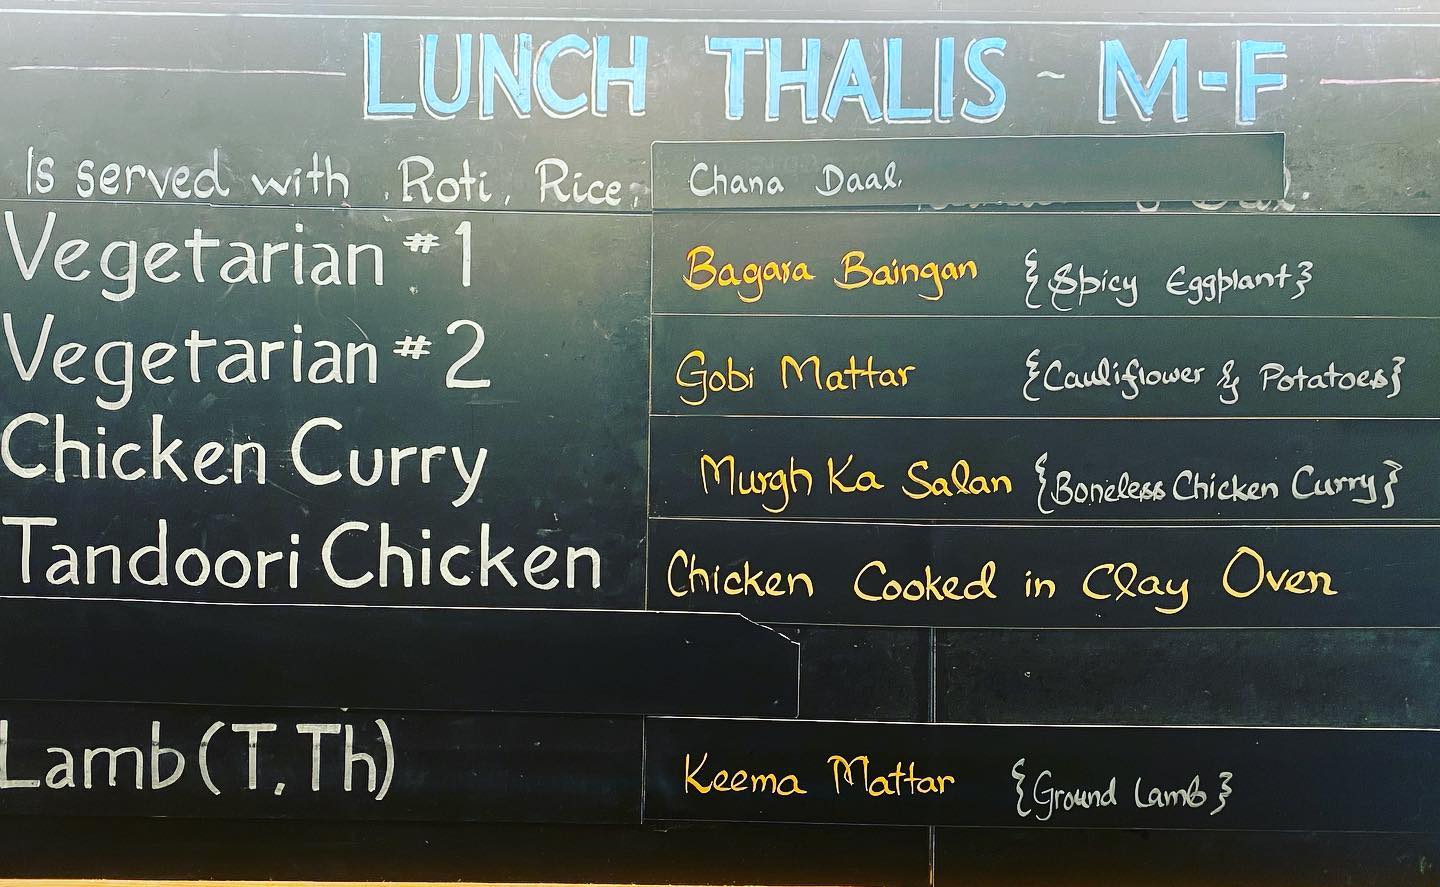 LUNCH THALIS ~ M-F
Is served with Roti, Rice, Chana Daal.
Vegetarian #1 Bagara Baingan {Spicy Eggplant}
Vegetarian #2 Gobi Mattar {Cauliflower & Potatoes}
Chicken Curry Murgh Ka Salan {Boneless Chicken Curry}
Tandoori Chicken Chicken Cooked in Clay Oven
Lamb (T,Th) Keema Mattar {Ground Lamb}